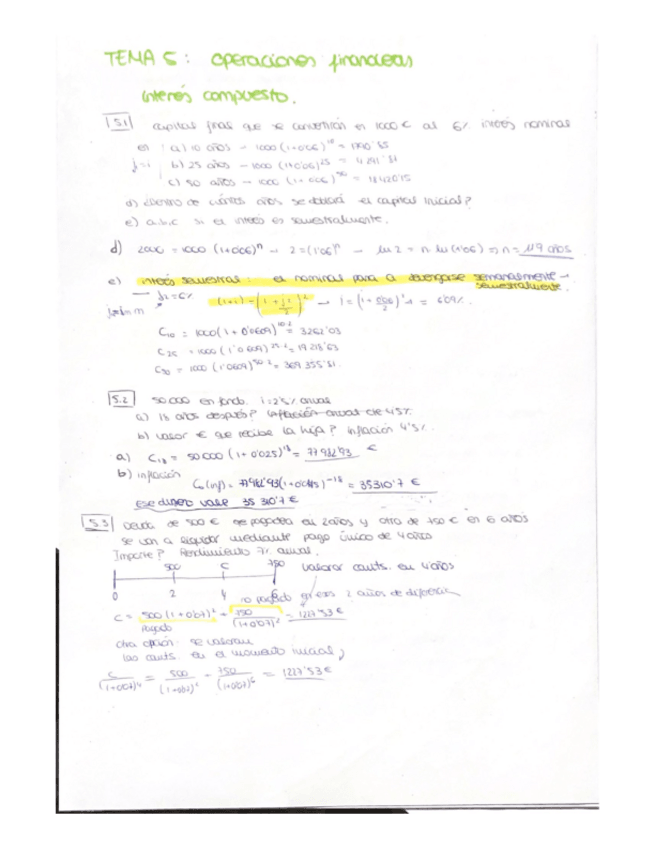 TEMA 5: operaciones financieras
interés compuesto.
5.1 capital final que se convertirán en 1000 € al 6% interés nominal
en a) 10 años - 1000 (1+0'06)^10 = 1790'85
j=i b) 25 años - 1000 (1+0'06)^25 = 4291'81
c) 50 años - 1000 (1+0'06)^50 = 18420'15
d) ¿Dentro de cuántos años se doblará el capital inicial?
e) a, b, c si el interés es semestralmente.
d) 2000 = 1000 (1+0'06)^n - 2 = (1'06)^n - ln 2 = n ln (1'06) => n = 11'9 años
e) interés semestral: el nominal para a devengarse semanalmente -
semestralmente.
j2 = 6%
(1+i) = (1 + j2/2)^2 -> i = (1 + 0'06/2)^2 - 1 = 6'09%
C10 = 1000 (1 + 0'0609)^10·2 = 3262'03
C25 = 1000 (1'0609)^25·2 = 19218'63
C50 = 1000 (1'0609)^50·2 = 369355'81
5.2 50000 en fondo. i = 2'5% anual
a) 18 años después? inflación anual de 4'5%
b) valor € que recibe la hija? inflación 4'5%.
a) C18 = 50000 (1+0'025)^18 = 77982'93 €
b) inflación
C0 (inf) = 77982'93 (1+0'045)^-18 = 35310'7 €
ese dinero vale 35310'7 €
5.3 Deuda de 500 € se pagadera en 2 años y otra de 750 € en 6 años
se van a liquidar mediante pago único de 4 años
Importe? Rendimiento 7% anual.
500 C 750 valorar cants. en 4 años
0 2 4 6
lo pagado en esos 2 años de diferencia
C = 500 (1+0'07)^2 + 750/(1+0'07)^2 = 1227'53 €
pagado
otra opción: se valoran
las cants. en el momento inicial;
C/(1+0'07)^4 = 500/(1+0'07)^2 - 750/(1+0'07)^6 = 1227'53 €